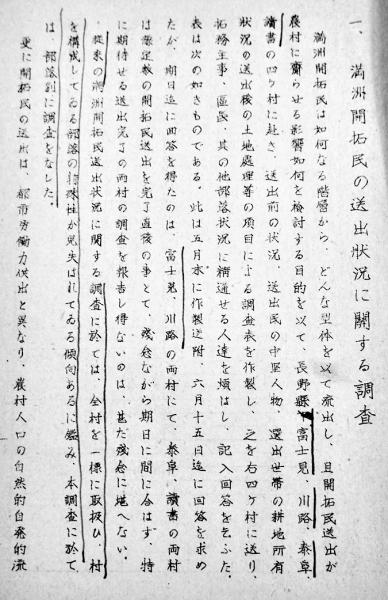 一、滿洲開拓民の送出狀況に關する調査
滿洲開拓民は如何なる階層から、どんな型体を以て流出し、且開拓民送出が
農村に齎らせる影響如何を檢討する目的を以て、長野縣富士見、川路、泰阜、
讀書の四ケ村に赴き、送出前の狀況、送出民の中堅人物、選出世帶の耕地所有
狀況の送出後の土地處理等の項目による調査表を作製し、之を右四ケ村に送り、
拓務主事、區長、其の他部落狀況に精通せる人達を煩はし、記入回答を乞ふた。
表は次の如きものである。此は五月末に作製送附、六月十五日迄に回答を求め
たが、期日迄に回答を得たのは、富士見、川路の両村にて、泰阜、讀書の両村
は豫定数の開拓民送出を完了直後の事とて、殘念ながら期日に間に合はず、特
に期待せる送出完了の両村の調査を報告し得ないのは、甚だ殘念に堪へない。
從來の滿洲開拓民送出狀況に關する調査に於ては、全村を一樣に取扱ひ、村
を構成してゐる部落の特殊性が見失はれてゐる傾向あるに鑑み、本調査に於て
は、部落別に調査をなした。
更に開拓民の送出は、都市勞働力供出と異なり、農村人口の自然的自発的流